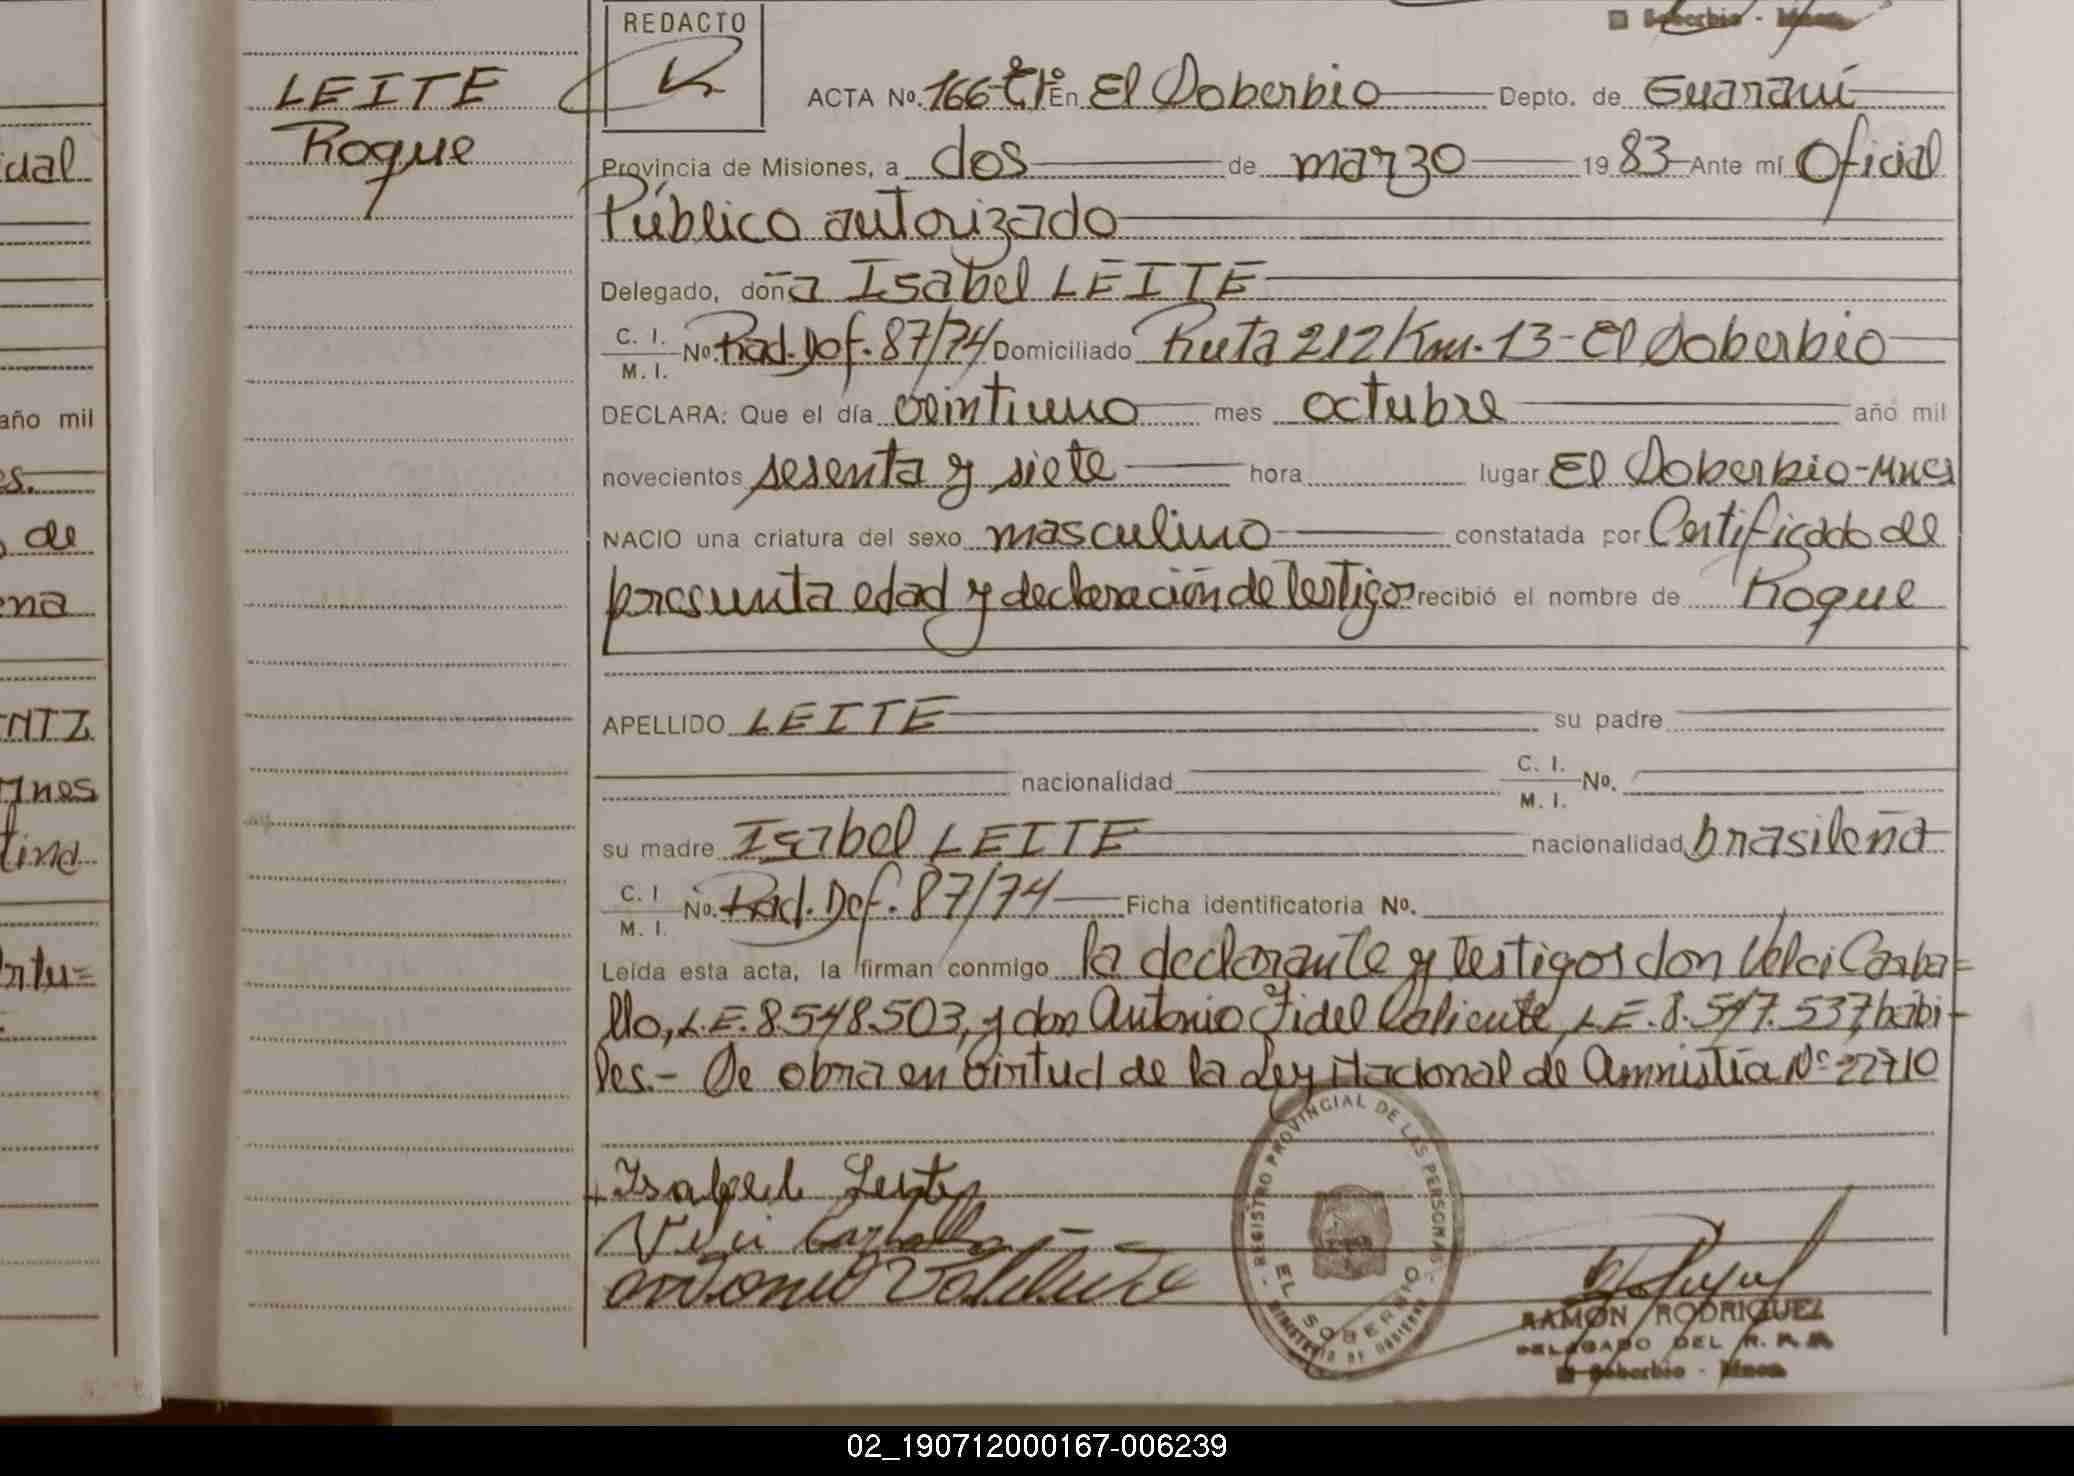 REDACTO
LEITE
Roque
ACTA Nº. 166 - Tº 1º En El Soberbio Depto. de Guaraní
Provincia de Misiones, a dos de marzo 1983 Ante mí Oficial
Público autorizado
Delegado, doña Isabel LEITE
C. I.
M. I. Nº. Rad. Def. 87/74 Domiciliado Ruta 212 Km. 13 - El Soberbio
DECLARA: Que el día veintiuno mes octubre año mil
novecientos sesenta y siete hora lugar El Soberbio - Mnes
NACIO una criatura del sexo masculino constatada por Certificado de
presunta edad y declaración de testigos recibió el nombre de Roque
APELLIDO LEITE su padre
nacionalidad C. I.
M. I. Nº.
su madre Isabel LEITE nacionalidad brasileña
C. I
M. I. Nº. Rad. Def. 87/74 Ficha identificatoria Nº.
Leída esta acta, la firman conmigo la declarante y testigos don Velci Carba=
llo, L.E. 8.548.503, y don Antonio Fidel Valiente, L.E. 8.547.537, hábi-
les.- Se obra en virtud de la Ley Nacional de Amnistía Nº 22710
REGISTRO PROVINCIAL DE LAS PERSONAS
EL SOBERBIO
MINISTERIO DE GOBIERNO
RAMON RODRIGUEZ
DELEGADO DEL R. P. P.
El Soberbio - Mnes.
año mil
de
02_190712000167-006239